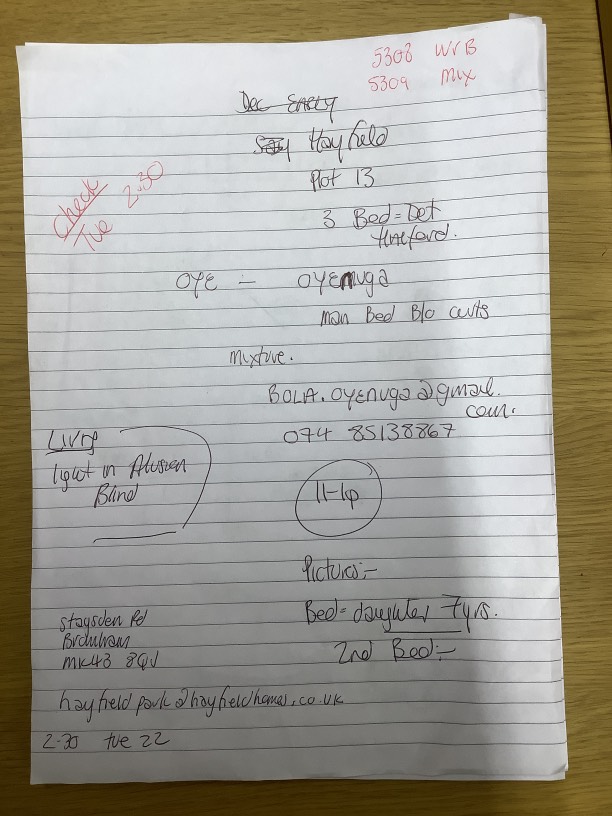 5308 WVB
5309 Mix
Dec EARLY
Hayfield
Plot 13
Check
Tue 2.30
3 Bed = Det
OYE – OYENUGA
man Bed B/o curts
mixture.
BOLA.OYENUGA@gmail.
com.
074 85138867
Living
light in
Blind
11-1p
Pictures:-
Bed = daughter 7yrs.
2nd Bed:-
Stagsden Rd
Bromham
MK43 8QJ
hayfieldpark@hayfieldhomes.co.uk
2.30 tue 22